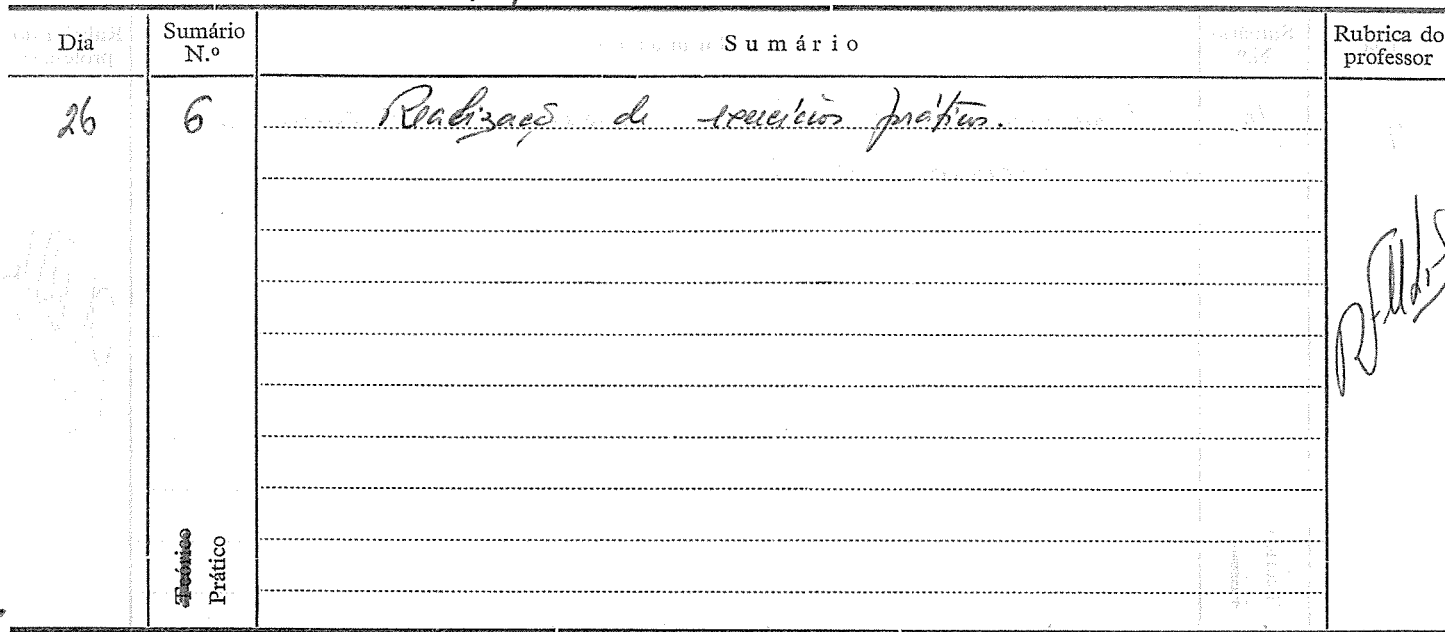 Dia Sumário N.º Sumário Rubrica do professor
26 6 Realização de exercícios práticos.
Teórico
Prático